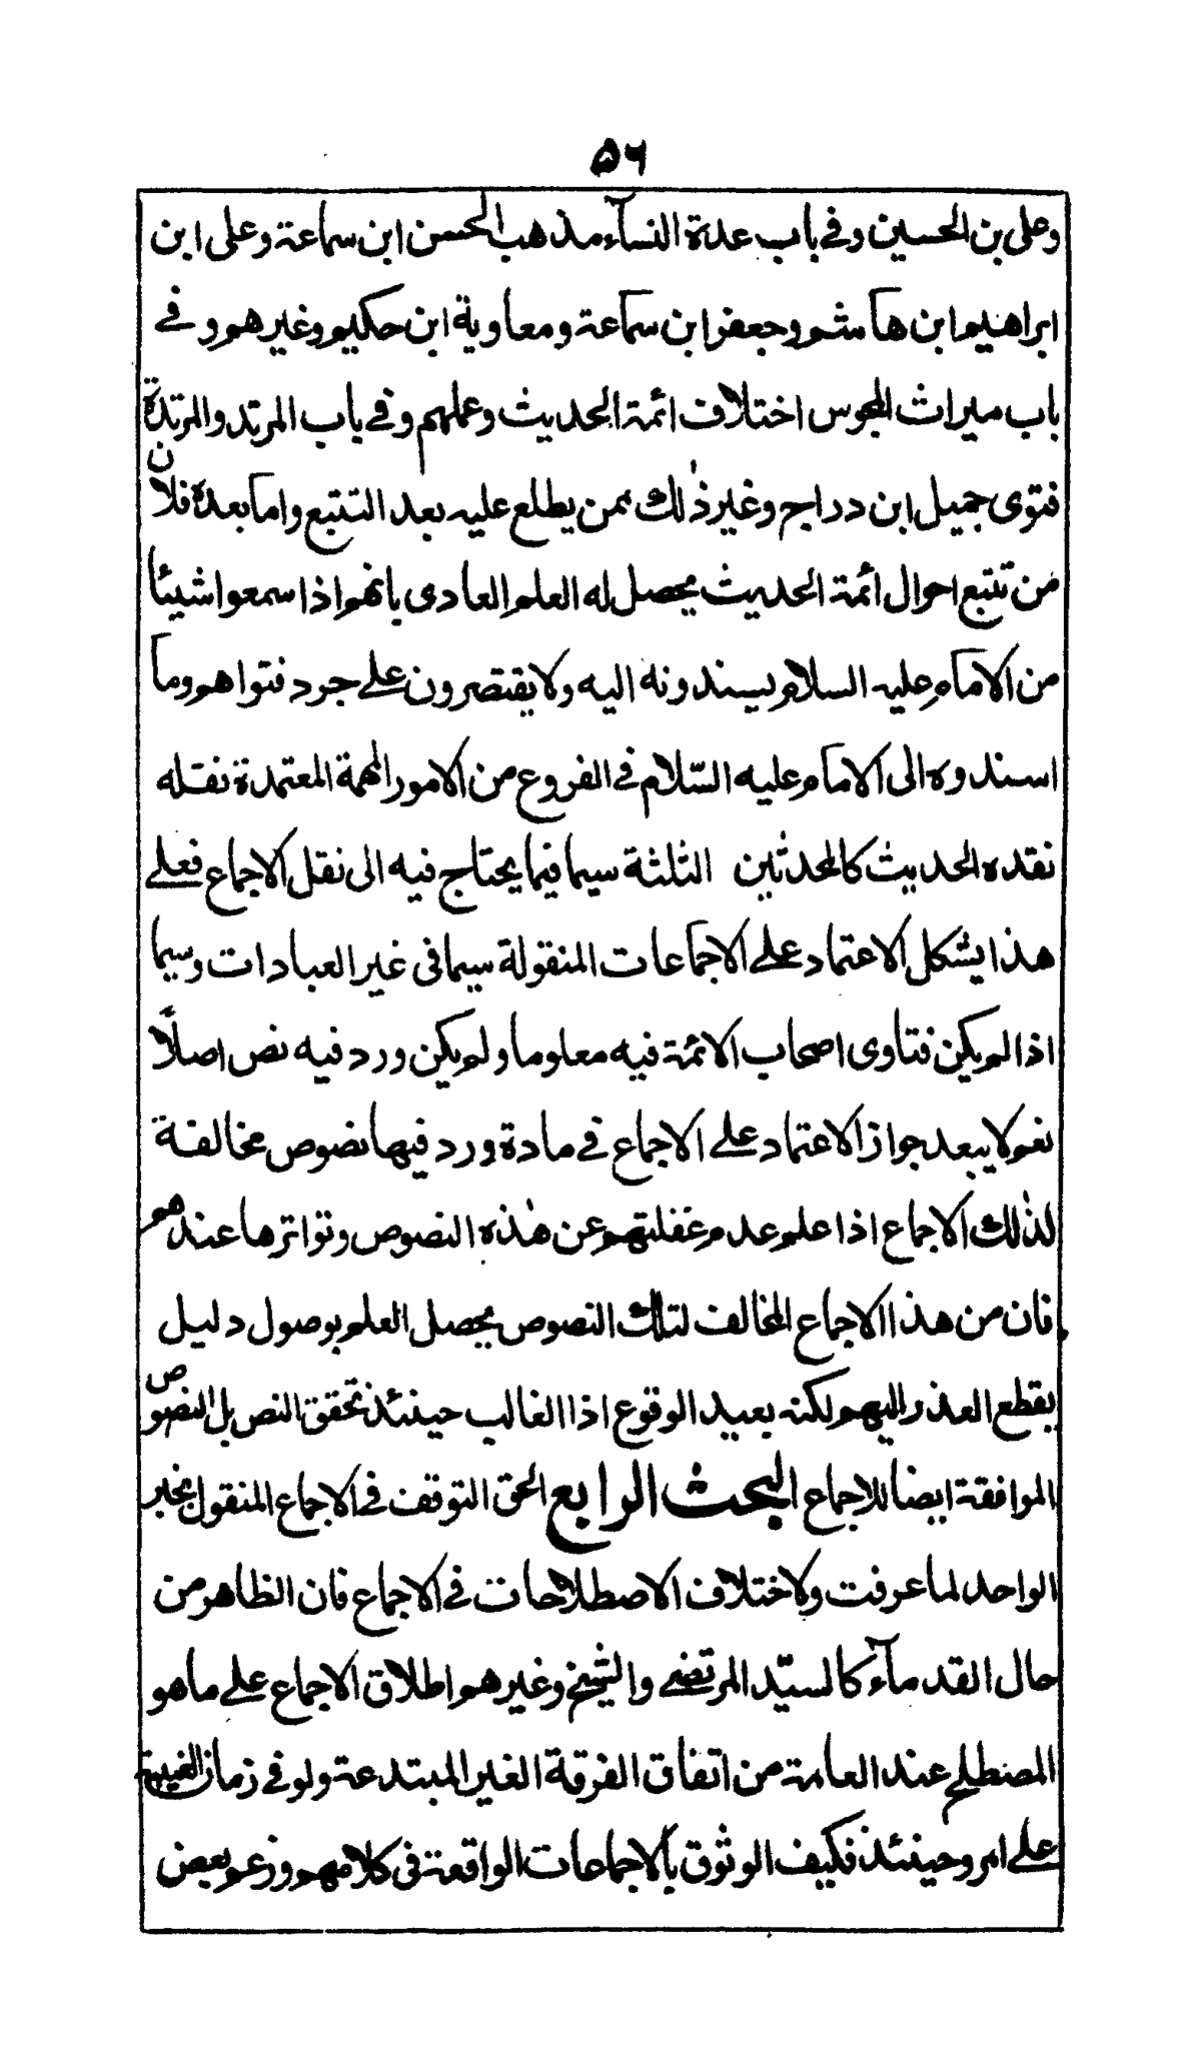 ٥٦
وعلى بن الحسين وفي باب عدة النسآء مذهب الحسن ابن سماعة وعلى ابن
ابراهيم ابن هاشم وجعفر ابن سماعة ومعاوية ابن حكيم وغيرهم وفي
باب ميراث المجوس اختلاف ائمة الحديث وعملهم وفي باب المرتد والمرتدة
فتوى جميل ابن دراج وغير ذٰلك ممن يطلع عليه بعد التتبع واما بعده فلان
من تتبع احوال ائمة الحديث يحصل له العلم العادى بانهم اذا سمعوا شيئا
من الامام عليه السلام يسندونه اليه ولا يقتصرون على جرد فتواهم وما
اسندوه الى الامام عليه السّلام في الفروع من الامور المهمة المعتمدة نقله
نقده الحديث كالمحدثين الثلثة سيما فيما يحتاج فيه الى نقل الاجماع فعلى
هذا يشكل الاعتماد على الاجماعات المنقولة سيما فى غير العبادات وسيما
اذا لم يكن فتاوى اصحاب الائمة فيه معلوما ولم يكن ورد فيه نص اصلًا
نعم لا يبعد جواز الاعتماد على الاجماع في مادة ورد فيها نصوص مخالفة
لذٰلك الاجماع اذا علم عدم غفلتهم عن هٰذه النصوص وتواترها عندهم
فان من هذا الاجماع المخالف لتلك النصوص يحصل العلم بوصول دليل
يقطع العذر اليهم لكنه بعيد الوقوع اذا الغالب حينئذ تحقق النص بل النصوص
الموافقة ايضا للاجماع البحث الرابع الحق التوقف في الاجماع المنقول بخبر
الواحد لما عرفت ولاختلاف الاصطلاحات في الاجماع فان الظاهر من
حال القدمآء كالسيّد المرتضى والشيخ وغيرهم اطلاق الاجماع على ما هو
المصطلح عند العامة من اتفاق الفرقة الغير المبتدعة ولو في زمان الغيبة
على امر وحينئذ فكيف الوثوق بالاجماعات الواقعة فى كلامهم وزعم بعض